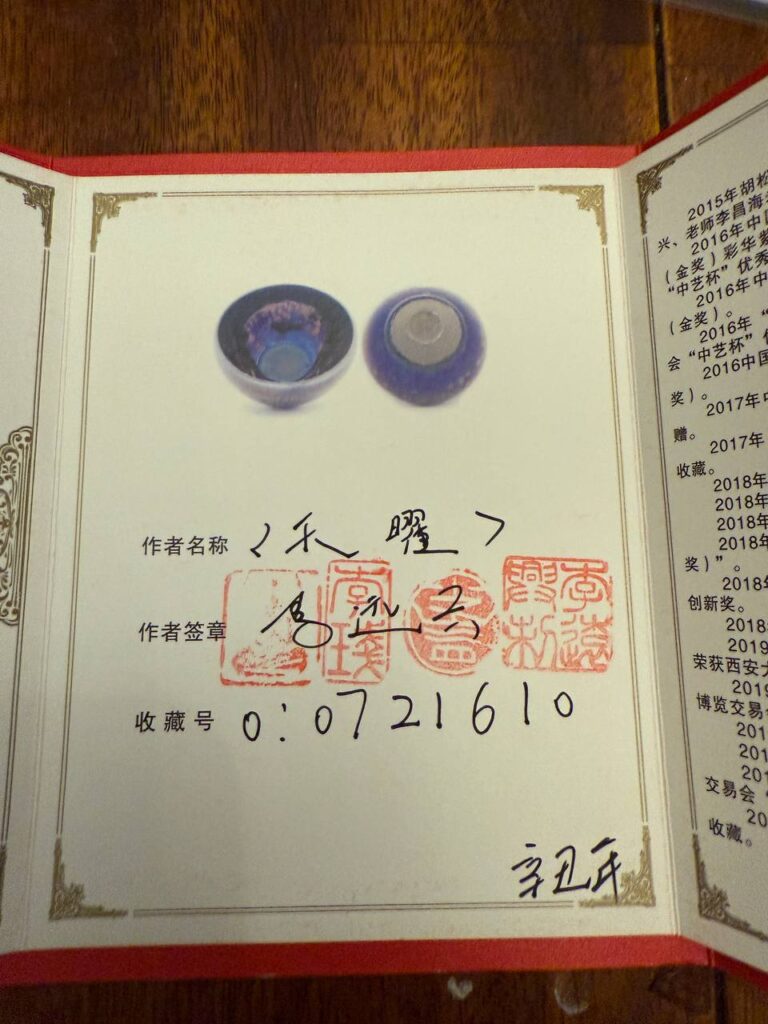 作者名称 〈禾 曜〉
作者签章
收藏号 0:0721610
辛丑年
2015年胡松
兴、老师李昌海
2016年中国
(金奖)彩华紫
“中艺杯”优秀
2016年中
(金奖)。
2016年“
会“中艺杯”优
2016中国
奖)。
2017年中
赠。
2017年
收藏。
2018年
2018年
2018年
2018年
奖)”。
2018年
创新奖。
2018
2019
荣获西安大
2019
博览交易会
201
201
201
交易会
20
收藏。